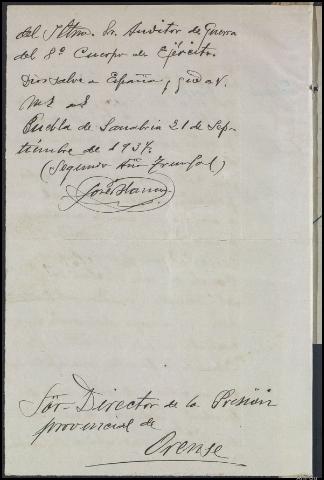 del Iltmo. Sr. Auditor de Guerra
del 8º Cuerpo de Ejército.
Dios salve a España y gde a V.
m. a.
Puebla de Sanabria 21 de Sep-
tiembre de 1937.
(Segundo Año Triunfal)
José Blanco
Sör. Director de la Prisión
provincial de
Orense